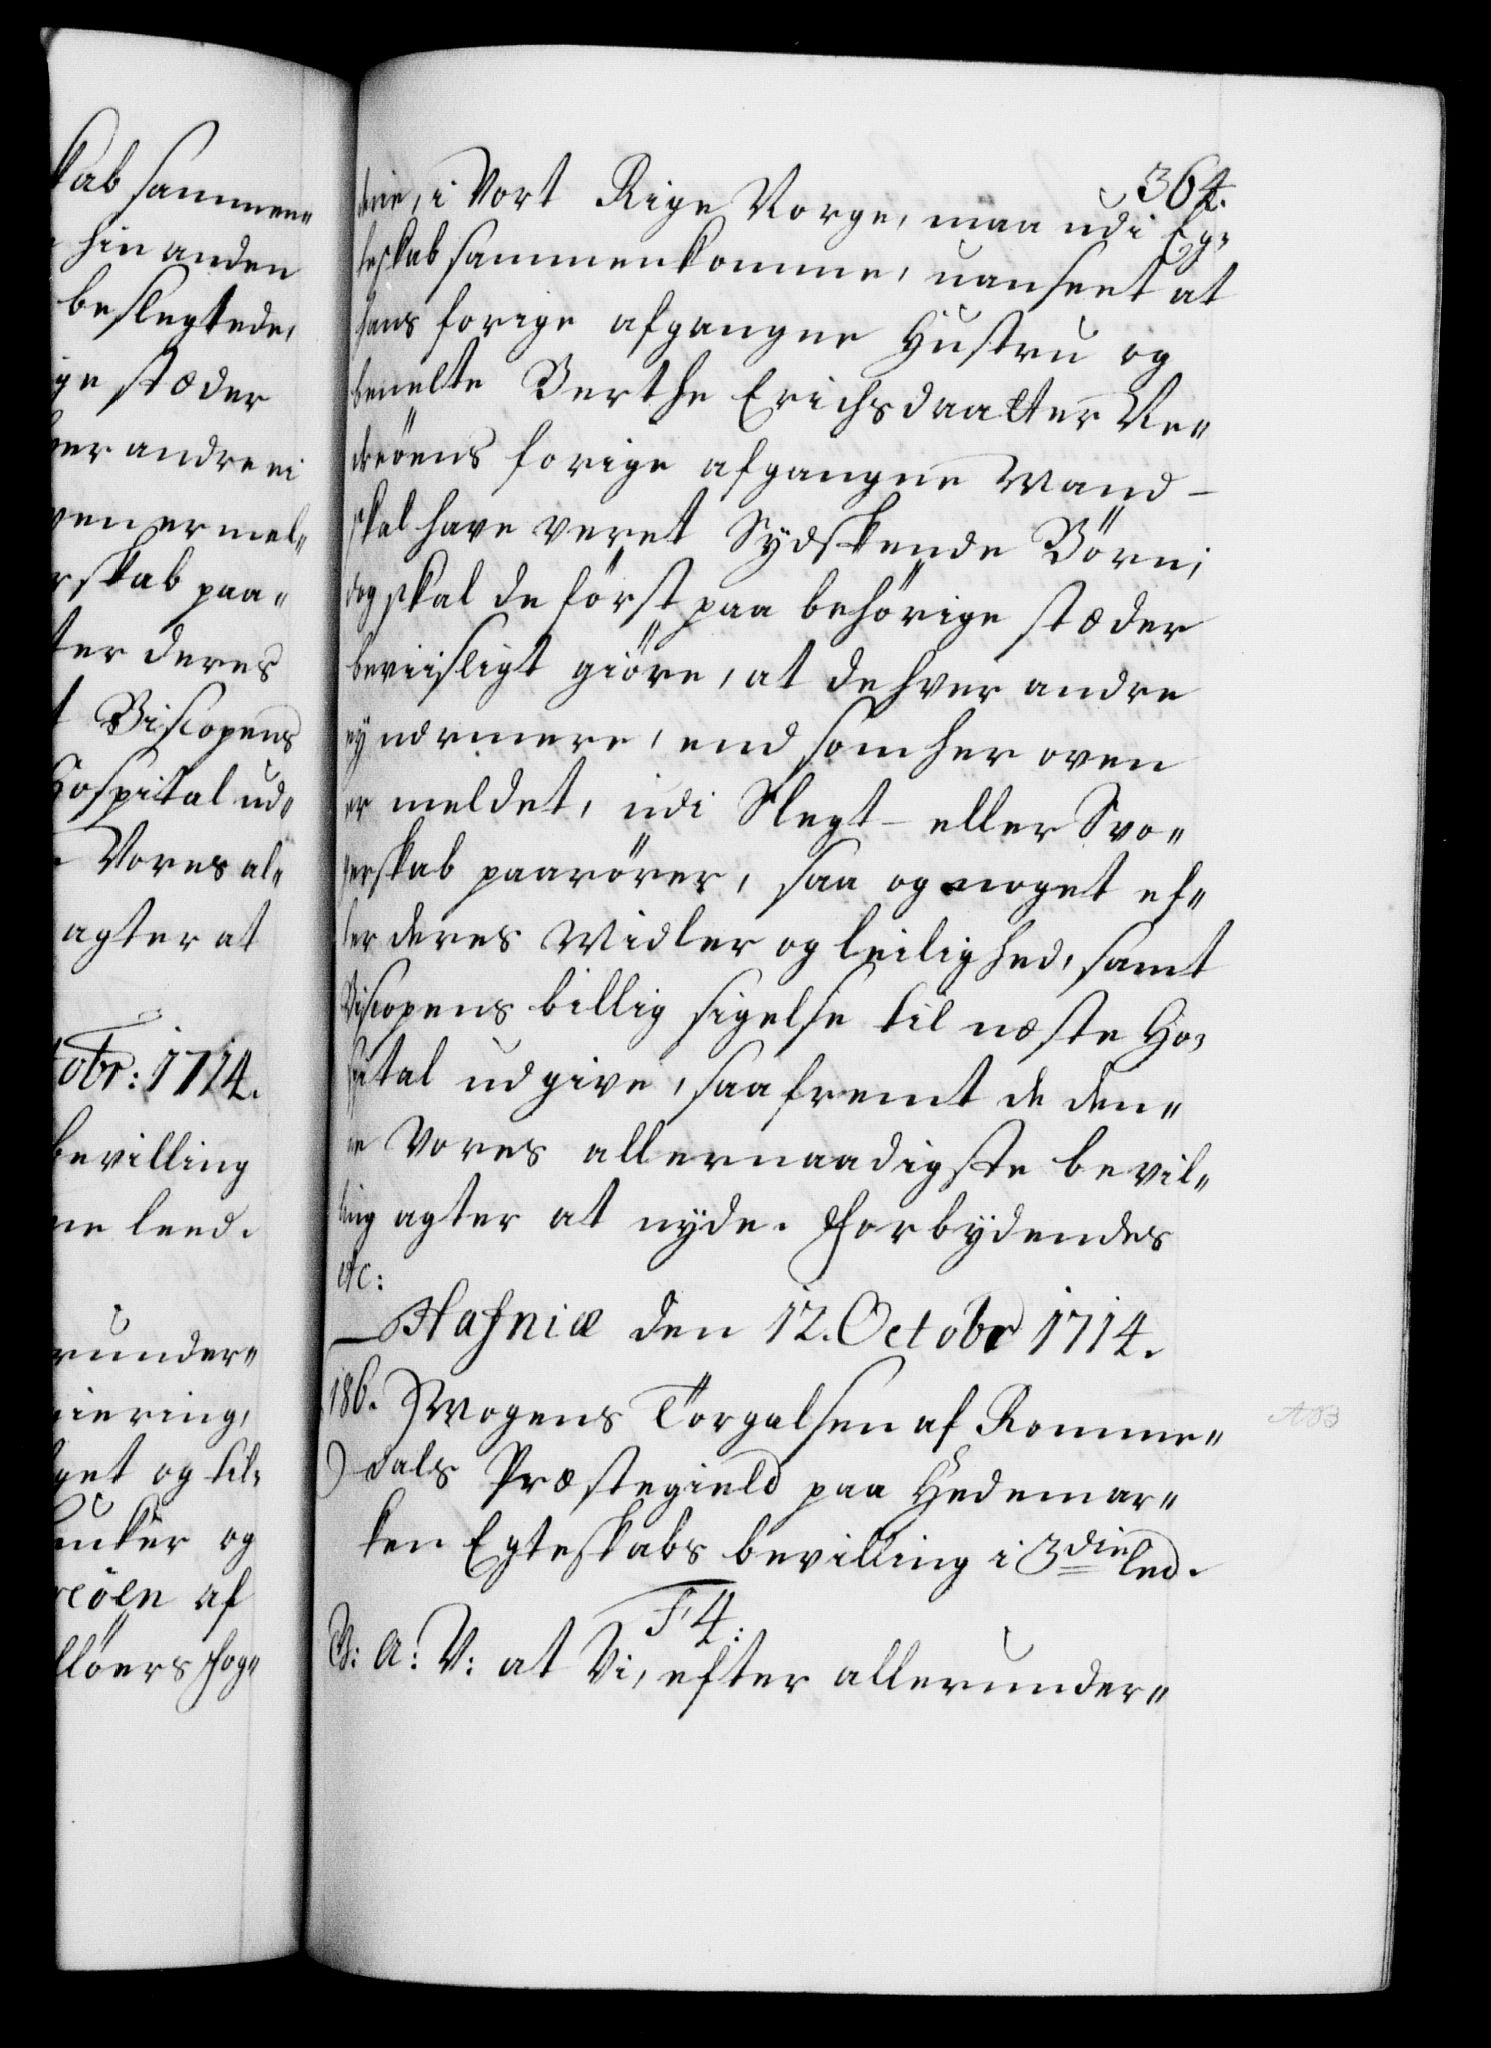 kab sammen„
hin anden
beslegtede,
ge stæder
ver andre ei
ven er mel„
rskab paa„
ter deres
t Biscopens
Hospital ud„
Vores al„
agter at
tobr: 1714.
bevilling
ne leed.
runder„
giering,
get og til„
unker og
reöen af
llöers fog„
364.
derie, i Vort Rige Norge, maa udi Eg„
teskab sammenkomme, uanseet at
hans forige afgangne Hustru og
benelte Berthe Erichsdaatter Re„
dreöens forige afgangne Mand –
skal have veret Sydskende Börn;
dog skal de först paa behörige stæder
beviisligt giöre, at de hver andre
ej nærmere, end som her oven
er meldet, udi Slegt – eller Svo„
gerskab paarörer, saa og noget ef„
ter deres Midler og leilighed, samt
Biscopens billig sigelse til næste Ho„
spital udgive, saafremt de den„
ne Vores allernaadigste bevil„
ling agter at nyde. Forbydendes
etc:
Hafniæ den 12. Octobr 1714.
186. Mogens Törgalsen af Romme„
dals Præstegield paa Hedemar„
ken Egteskabs bevilling i 3die led.
F4:
G: A: V: at Vi, efter allerunder„